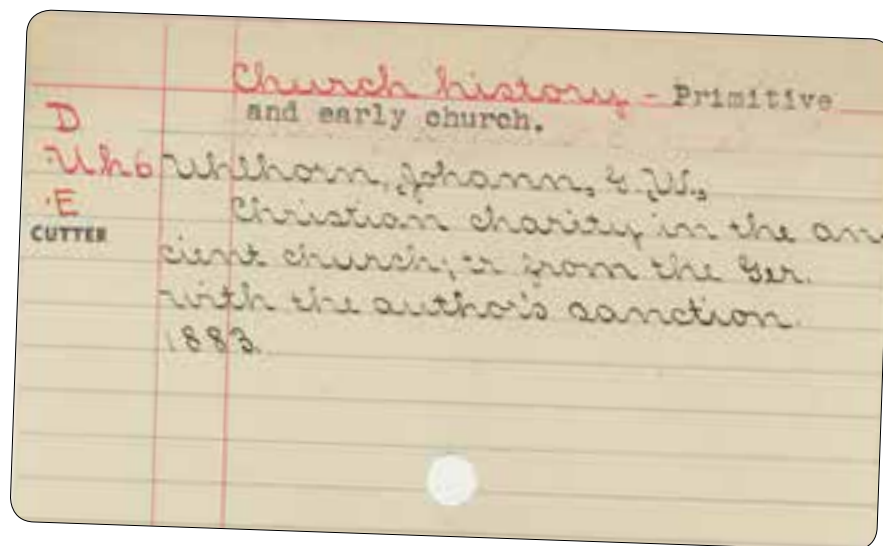 Church history - Primitive
and early church.
D
Uh6 Uhlhorn, Johann, G. W.,
.E Christian charity in the an-
CUTTER
cient church; tr from the Ger.
with the author's sanction.
1883.